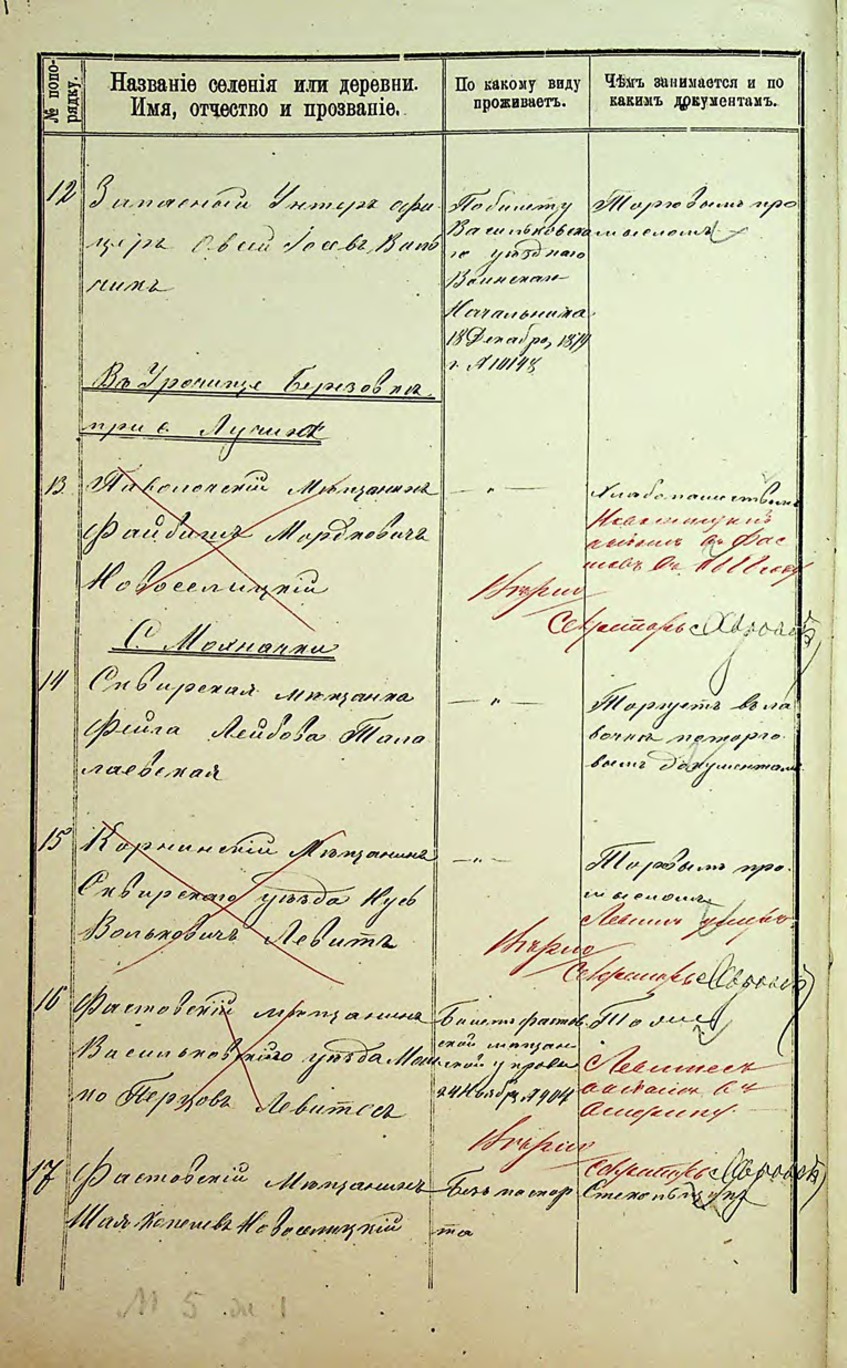 № попо-
рядку.
Названіе селенія или деревни.
Имя, отчество и прозваніе.
По какому виду
проживаетъ.
Чѣмъ занимается и по
какимъ документамъ.
12
Запасный Унтеръ офи-
церъ Овсій
По билету
Васильковска
го уѣзднаго
Воинскаго
Начальника
18 Декабря 1879
г. №
Торговымъ про
мысломъ
Въ Урочище Березовка
при с. Лучинѣ
13
Паволочскій Мѣщанинъ
Файбишъ Мордковичъ
Новоселицкій
— „ —
Хлѣбопашествомъ
Новоселицкій
въ Фас
товъ въ 1888 году
Вѣрно
Секретарь
С. Мохначки
14
Сквирская мѣщанка
Фейга Лейбова Тала
лаевская
— „ —
Торгуетъ въ ла
вочкѣ по торго
вымъ документамъ
15
Корнинскій Мѣщанинъ
Сквирскаго уѣзда Нусь
Вольковичъ Левитъ
— „ —
Торговымъ про-
мысломъ
Левитъ умеръ
Вѣрно
Секретарь
16
Фастовскій мѣщанинъ
Васильковскаго уѣзда Мош
ко Перцовъ Левитесъ
Билетъ фастов
ской мѣщан-
ской управы
24 Ноября № 904
Тоже
Левитесъ
въ
Америку
Вѣрно
Секретарь
17
Фастовскій Мѣщанинъ
Шая Копелевъ Новоселицкій
Безъ паспор
та
№ 5